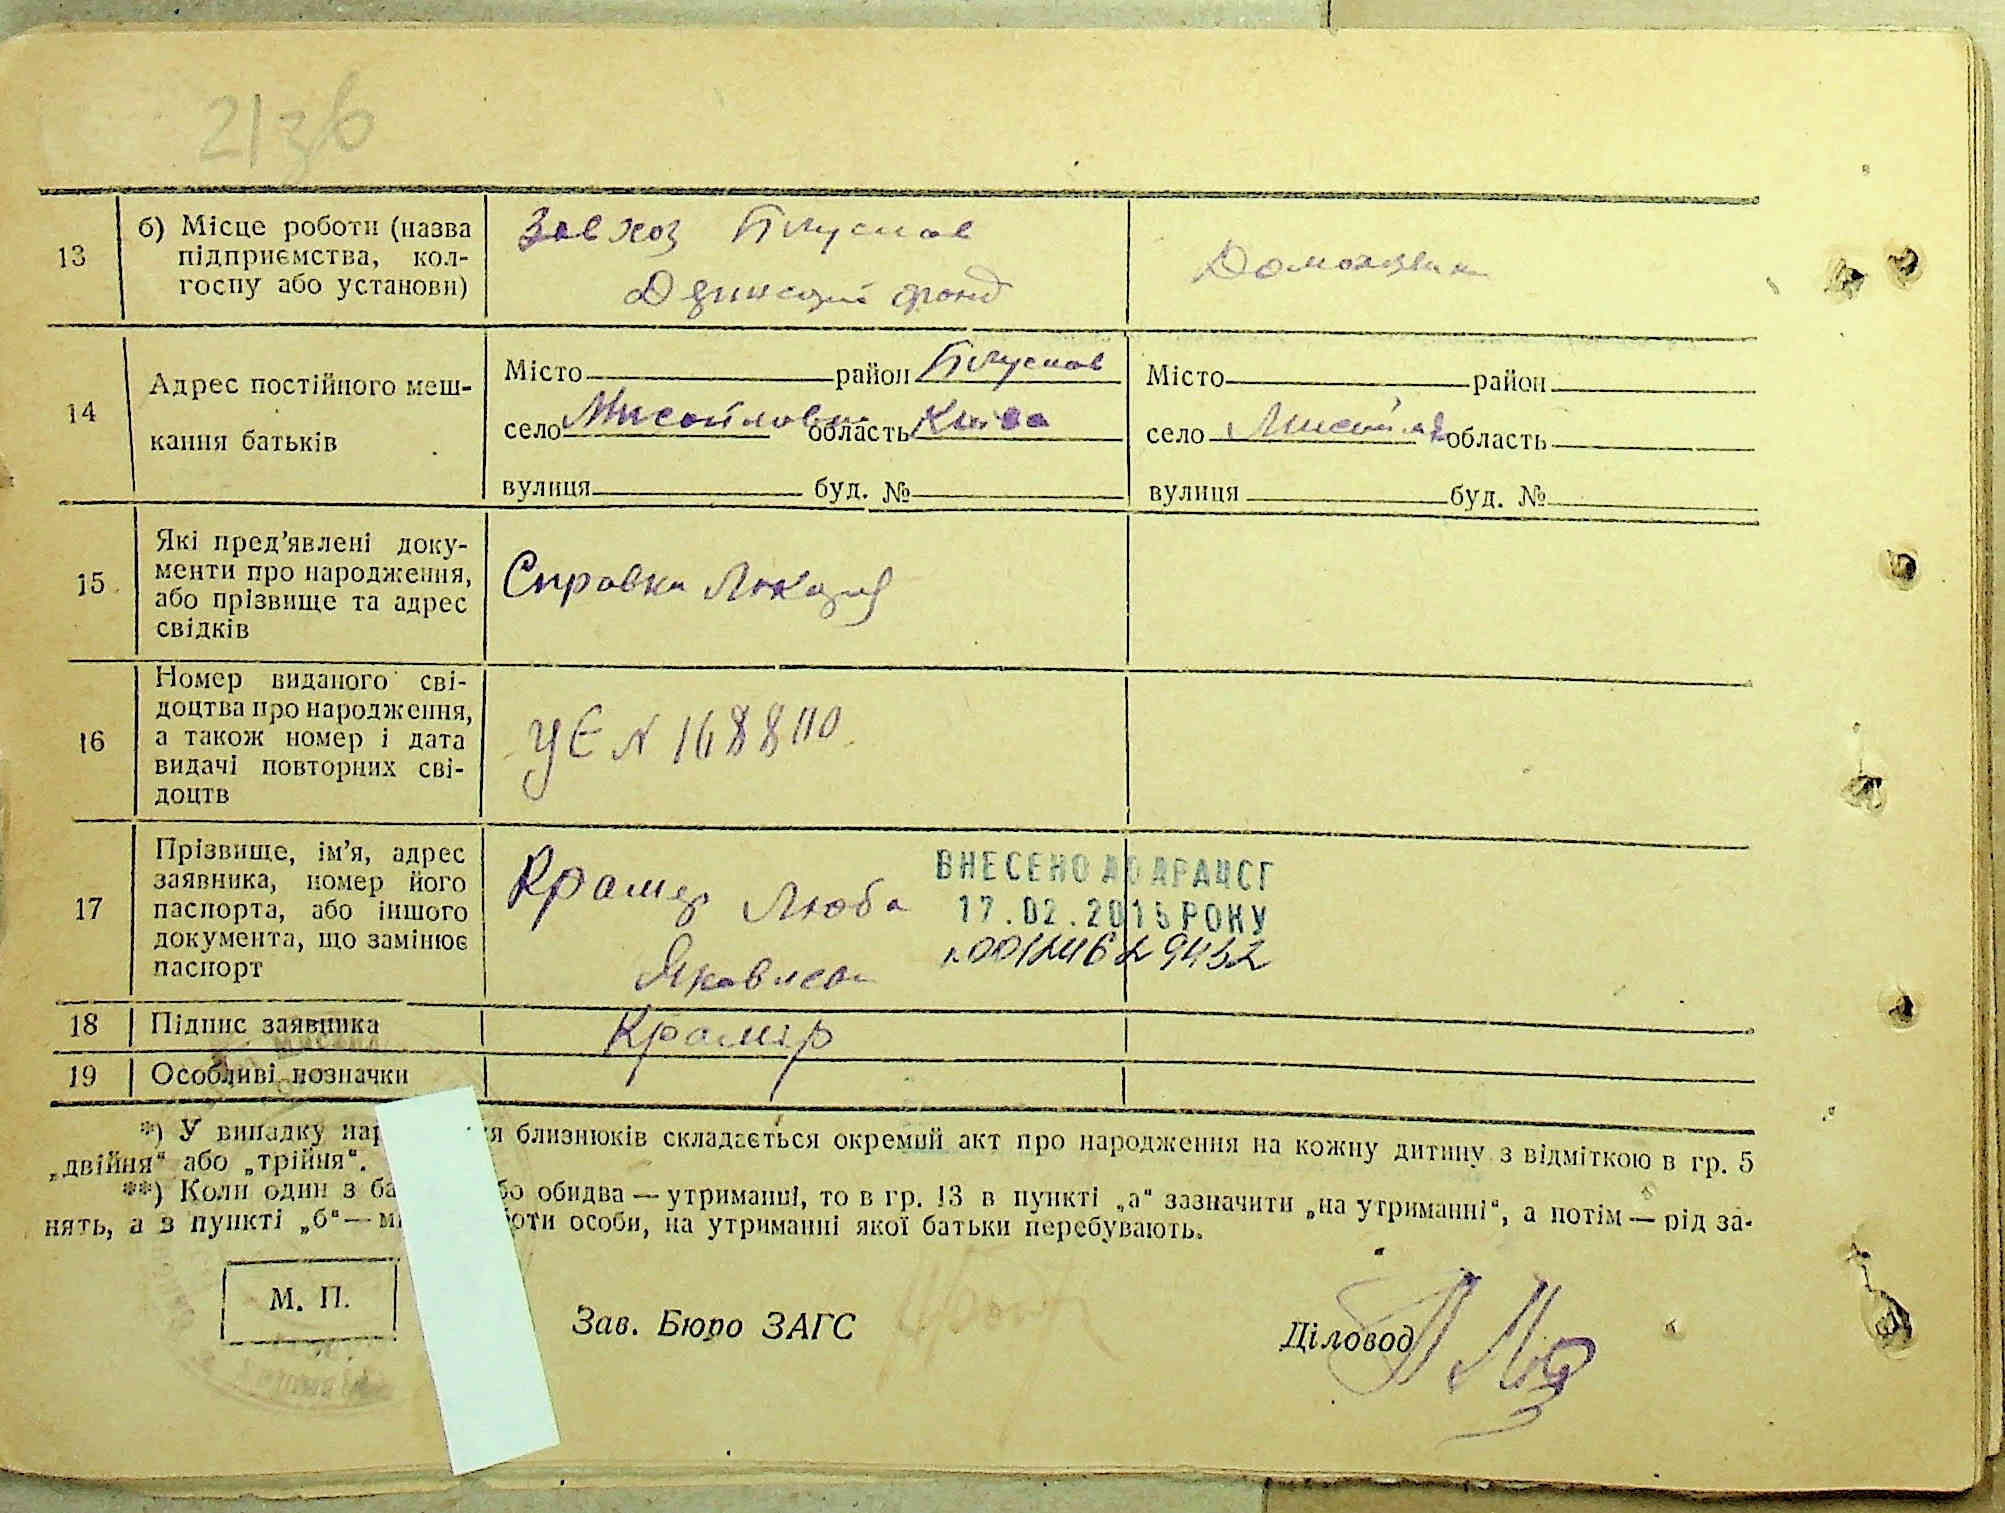 21зв
13 б) Місце роботи (назва
підприємства, кол-
госпу або установи)
Завхоз
фонд
14 Адрес постійного меш-
кання батьків
Місто район
село область
вулиця буд. №
Місто район
село область
вулиця буд. №
15 Які пред’явлені доку-
менти про народження,
або прізвище та адрес
свідків
Справка
16 Номер виданого сві-
доцтва про народження,
а також номер і дата
видачі повторних сві-
доцтв
УЄ N 1688110
17 Прізвище, ім’я, адрес
заявника, номер його
паспорта, або іншого
документа, що замінює
паспорт
Крамер Люба
ВНЕСЕНО ДО ДРАЦСГ
17.02.2015 РОКУ
18 Підпис заявника
Крамер
19 Особливі позначки
*) У випадку близнюків складається окремий акт про народження на кожну дитину з відміткою в гр. 5
„двійня“ або „трійня“.
**) Коли один з обидва — утриманці, то в гр. 13 в пункті „а“ зазначити „на утриманні“, а потім — рід за-
нять, а в пункті „б“ — особи, на утриманні якої батьки перебувають.
М. П.
Зав. Бюро ЗАГС
Діловод